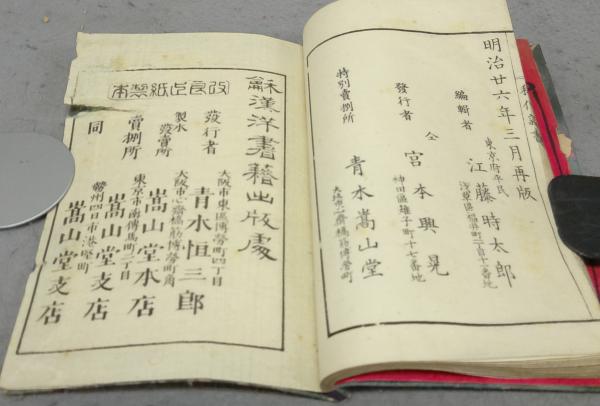 明治廿六年三月再版
編輯者
東京府平民
江藤時太郎
淺草區福井町二百十二番地
發行者
仝
宮本興晃
神田區雉子町十七番地
特別賣捌所
青木嵩山堂
大坂市心齋橋筋博勞町
龢漢洋書籍出版處
改良占紙製本
發行者
大阪市東區博勞町四丁目
青木恒三郎
製本發賣所
大阪市心齋橋筋博勞町角
嵩山堂本店
賣捌所
東京市南傳馬町二丁目
嵩山堂支店
同
勢州四日市港竪町
嵩山堂支店